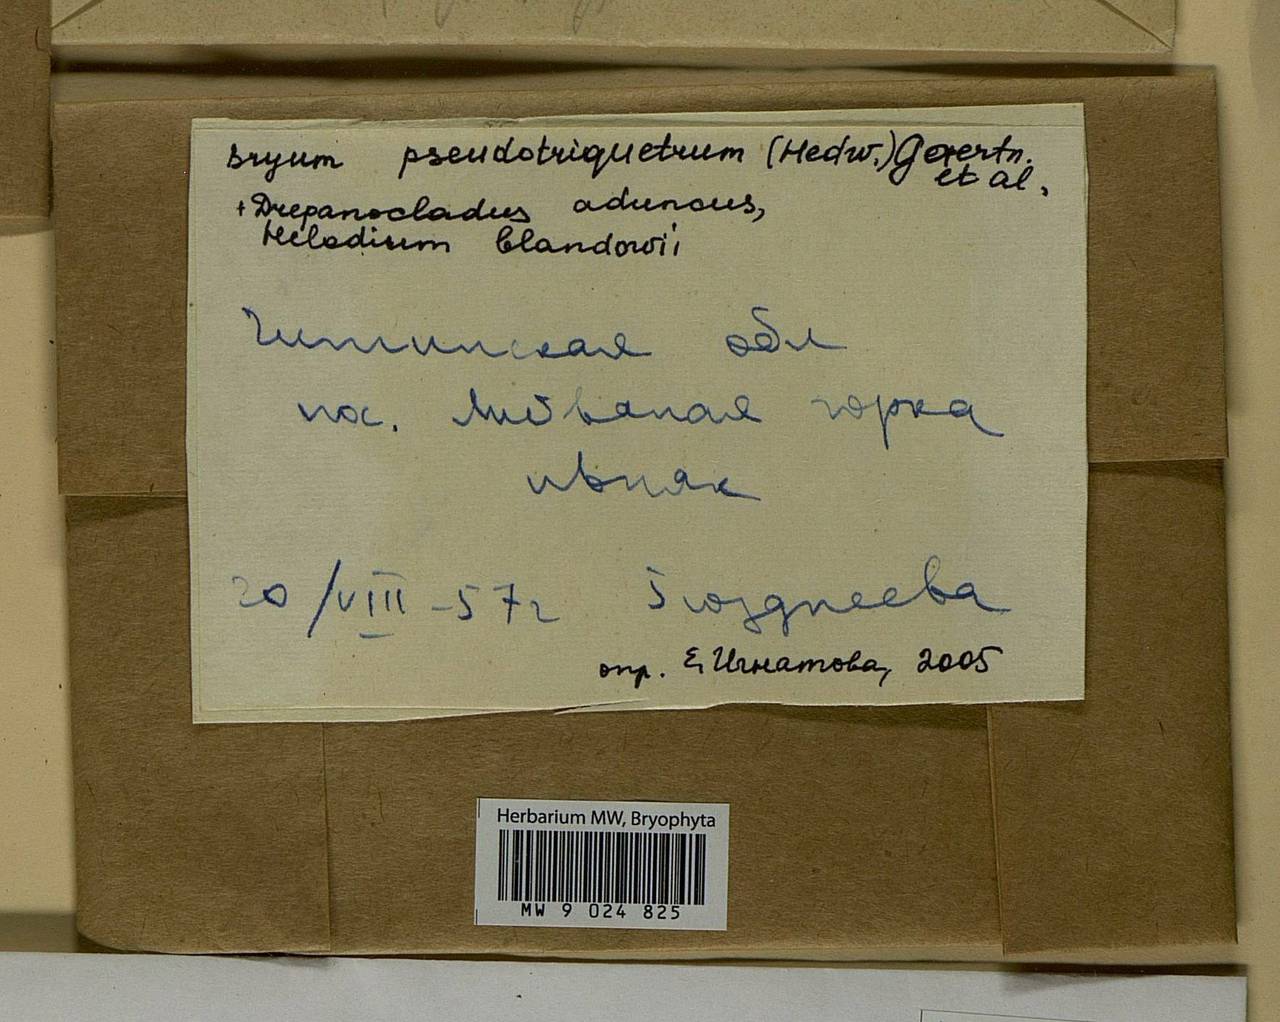 Bryum pseudotriquetrum (Hedw.) Gaertn.
et al.
+ Drepanocladus aduncus,
Helodium blandowii
Читинская обл
пос. горка
ивняк
20/VIII -57г Позднеева
опр. Е. Игнатова, 2005
Herbarium MW, Bryophyta
MW 9 024 825